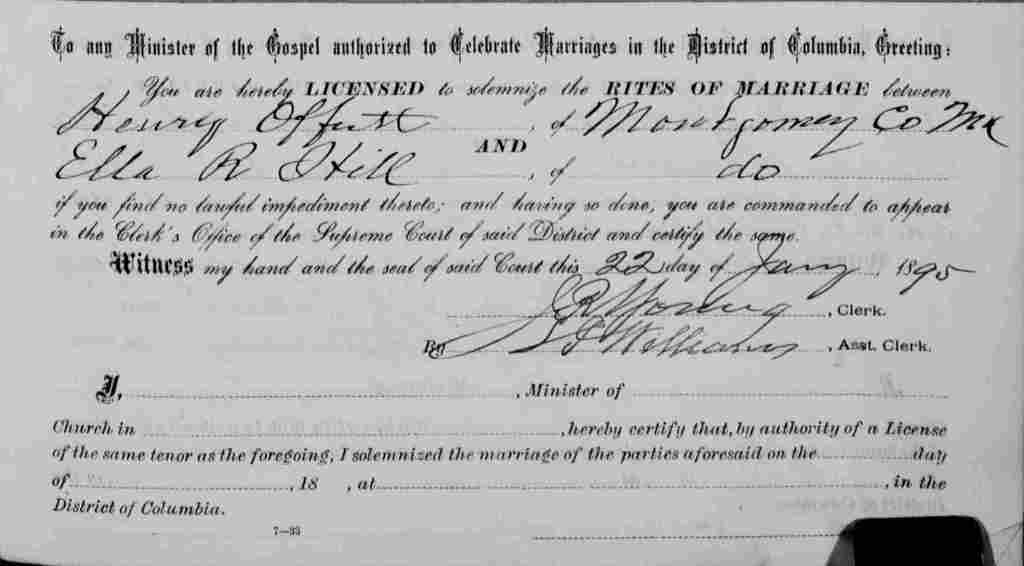 To any Minister of the Gospel authorized to Celebrate Marriages in the District of Columbia, Greeting:
You are hereby LICENSED to solemnize the RITES OF MARRIAGE between
Henry Offutt, of Montgomery Co Md
AND
Ella R Hill, of do
if you find no lawful impediment thereto; and having so done, you are commanded to appear
in the Clerk's Office of the Supreme Court of said District and certify the same.
Witness my hand and the seal of said Court this 22 day of Jany, 1895
J R Young, Clerk.
By L J Williams, Asst. Clerk.
I, , Minister of
Church in , hereby certify that, by authority of a License
of the same tenor as the foregoing, I solemnized the marriage of the parties aforesaid on the day
of , 18 , at , in the
District of Columbia.
7—33